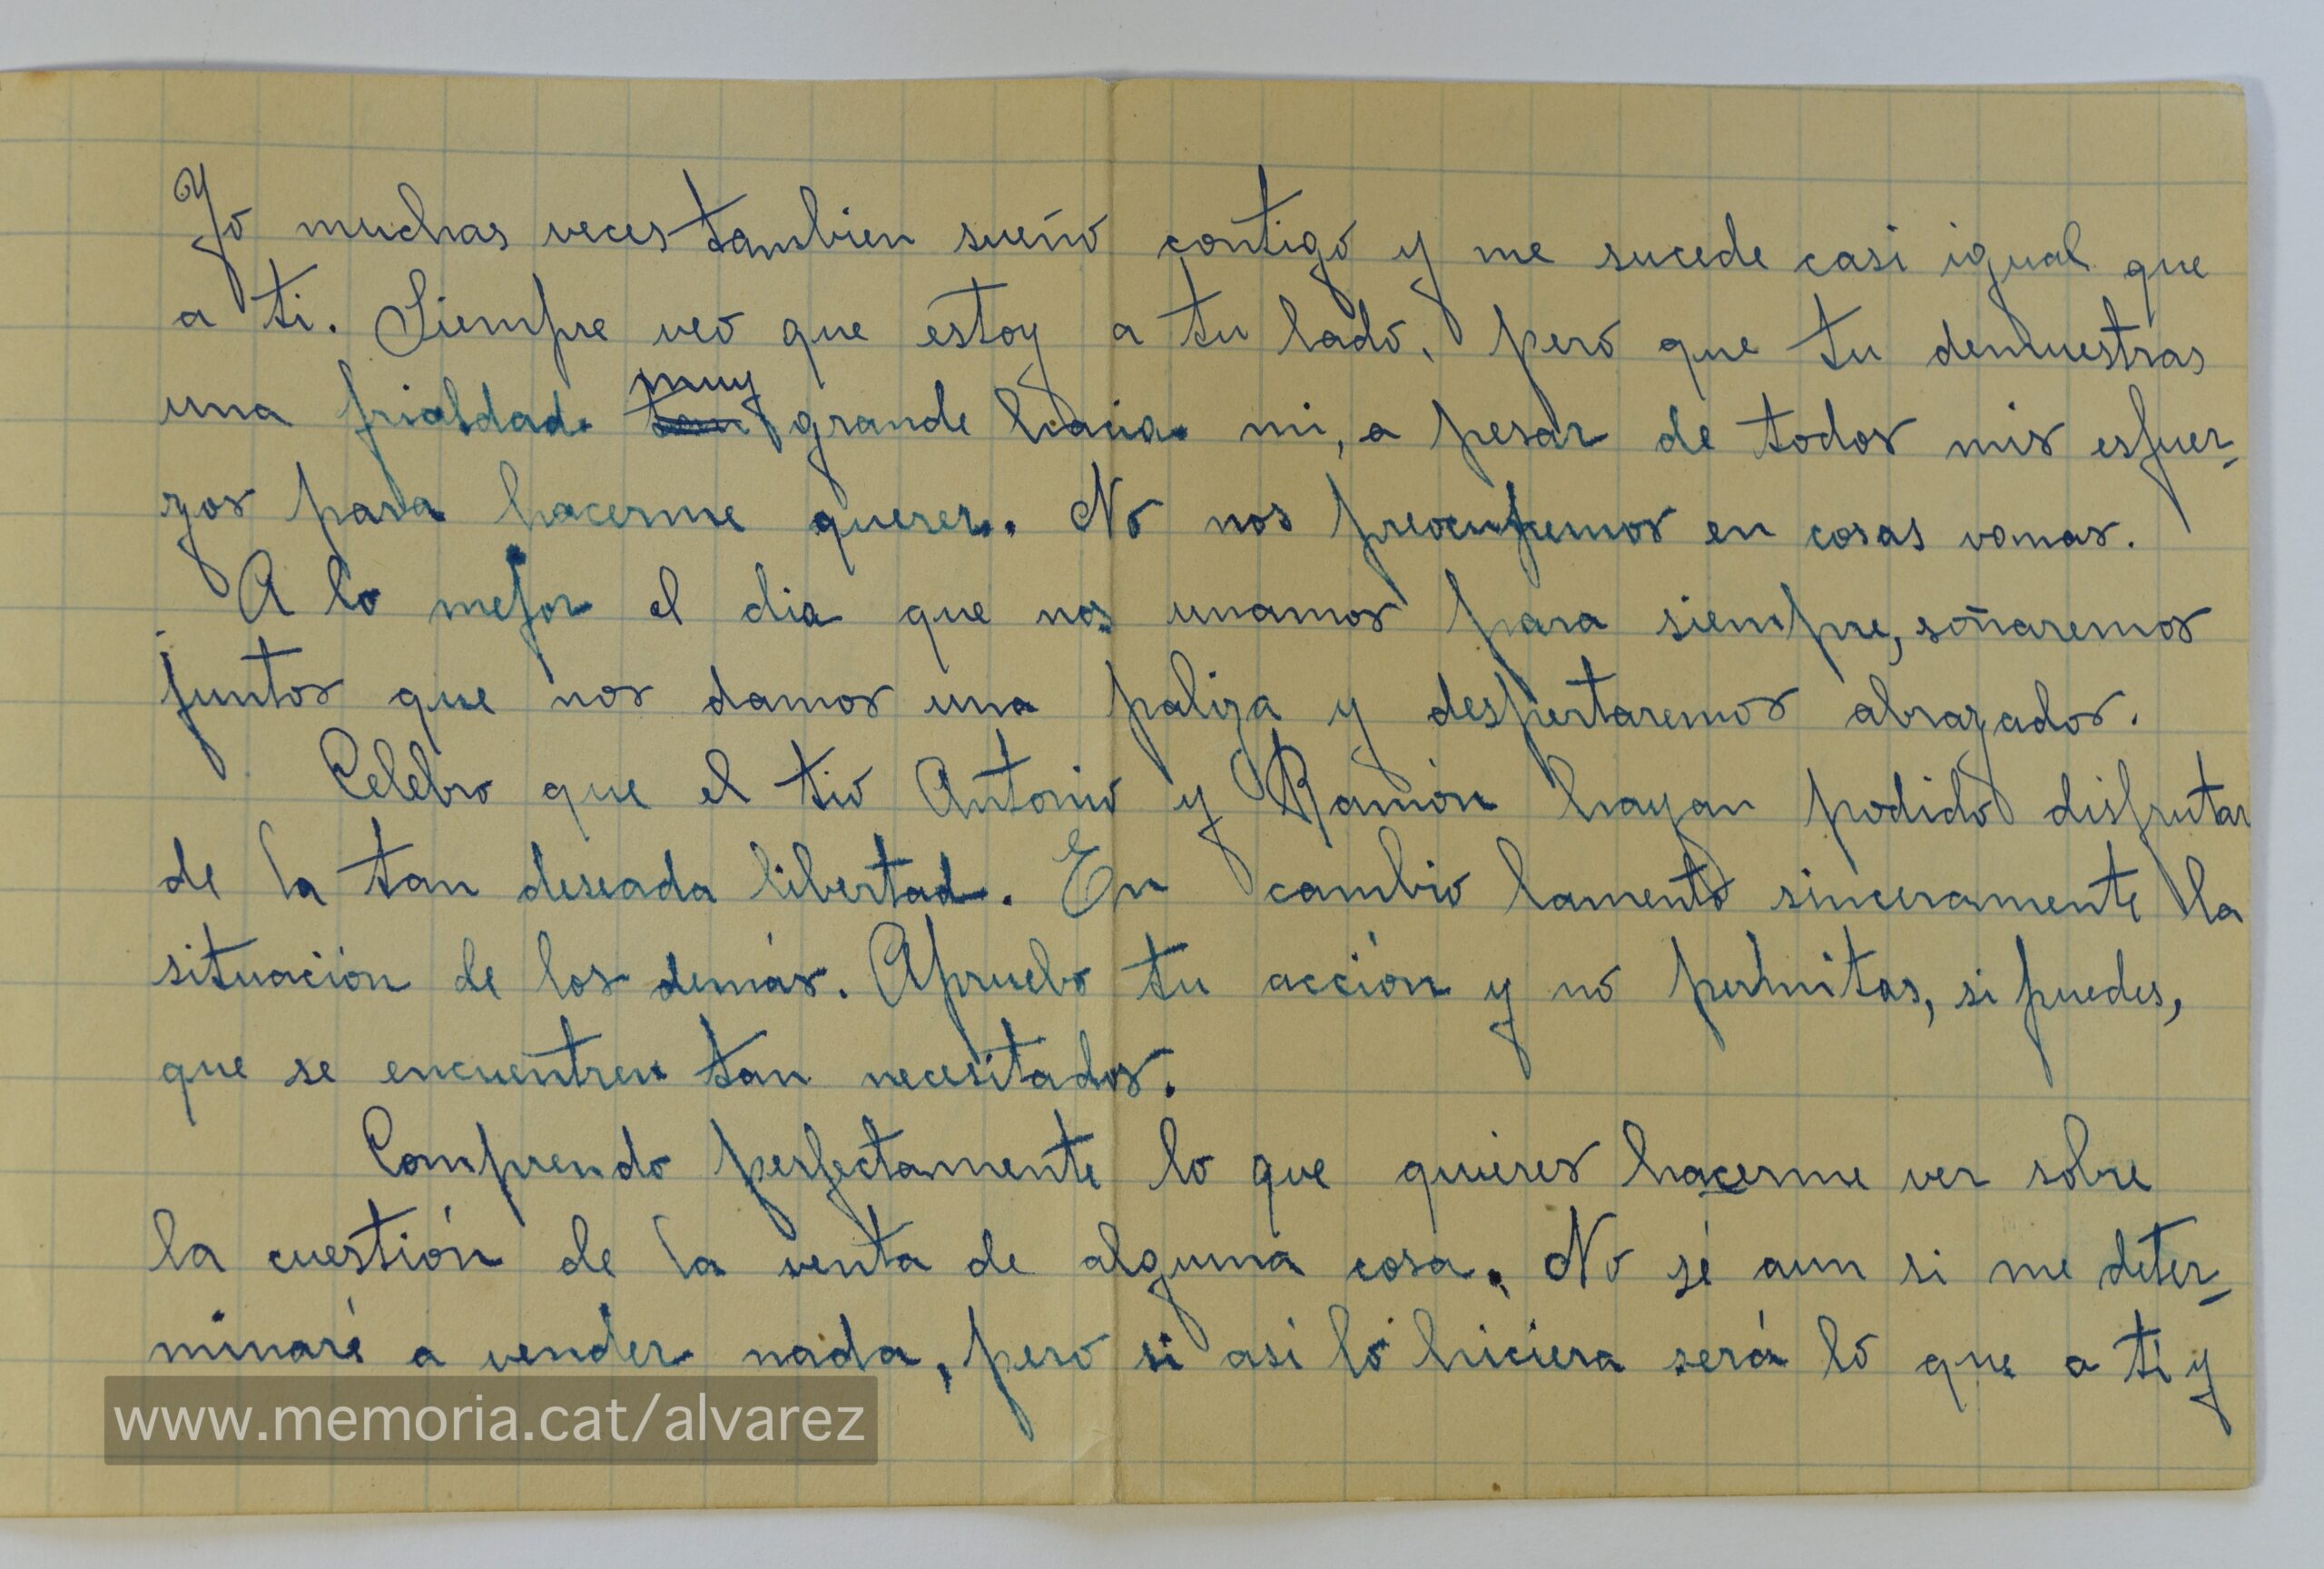 Yo muchas veces tambien sueño contigo y me sucede casi igual que
a ti. Siempre veo que estoy a tu lado, pero que tu demuestras
una frialdad muy grande hacia mi, a pesar de todos mis esfuer-
zos para hacerme querer. No nos preocupemos en cosas vanas.
A lo mejor el dia que nos unamos para siempre, soñaremos
juntos que nos damos una paliza y despertaremos abrazados.
Celebro que el tio Antonio y Ramón hayan podido disfrutar
de la tan deseada libertad. En cambio lamento sinceramente la
situación de los demás. Apruebo tu acción y no permitas, si puedes,
que se encuentren tan necesitados.
Comprendo perfectamente lo que quieres hacerme ver sobre
la cuestión de la venta de alguna cosa. No sé aun si me deter-
minaré a vender nada, pero si asi lo hiciera será lo que a ti y
www.memoria.cat/alvarez